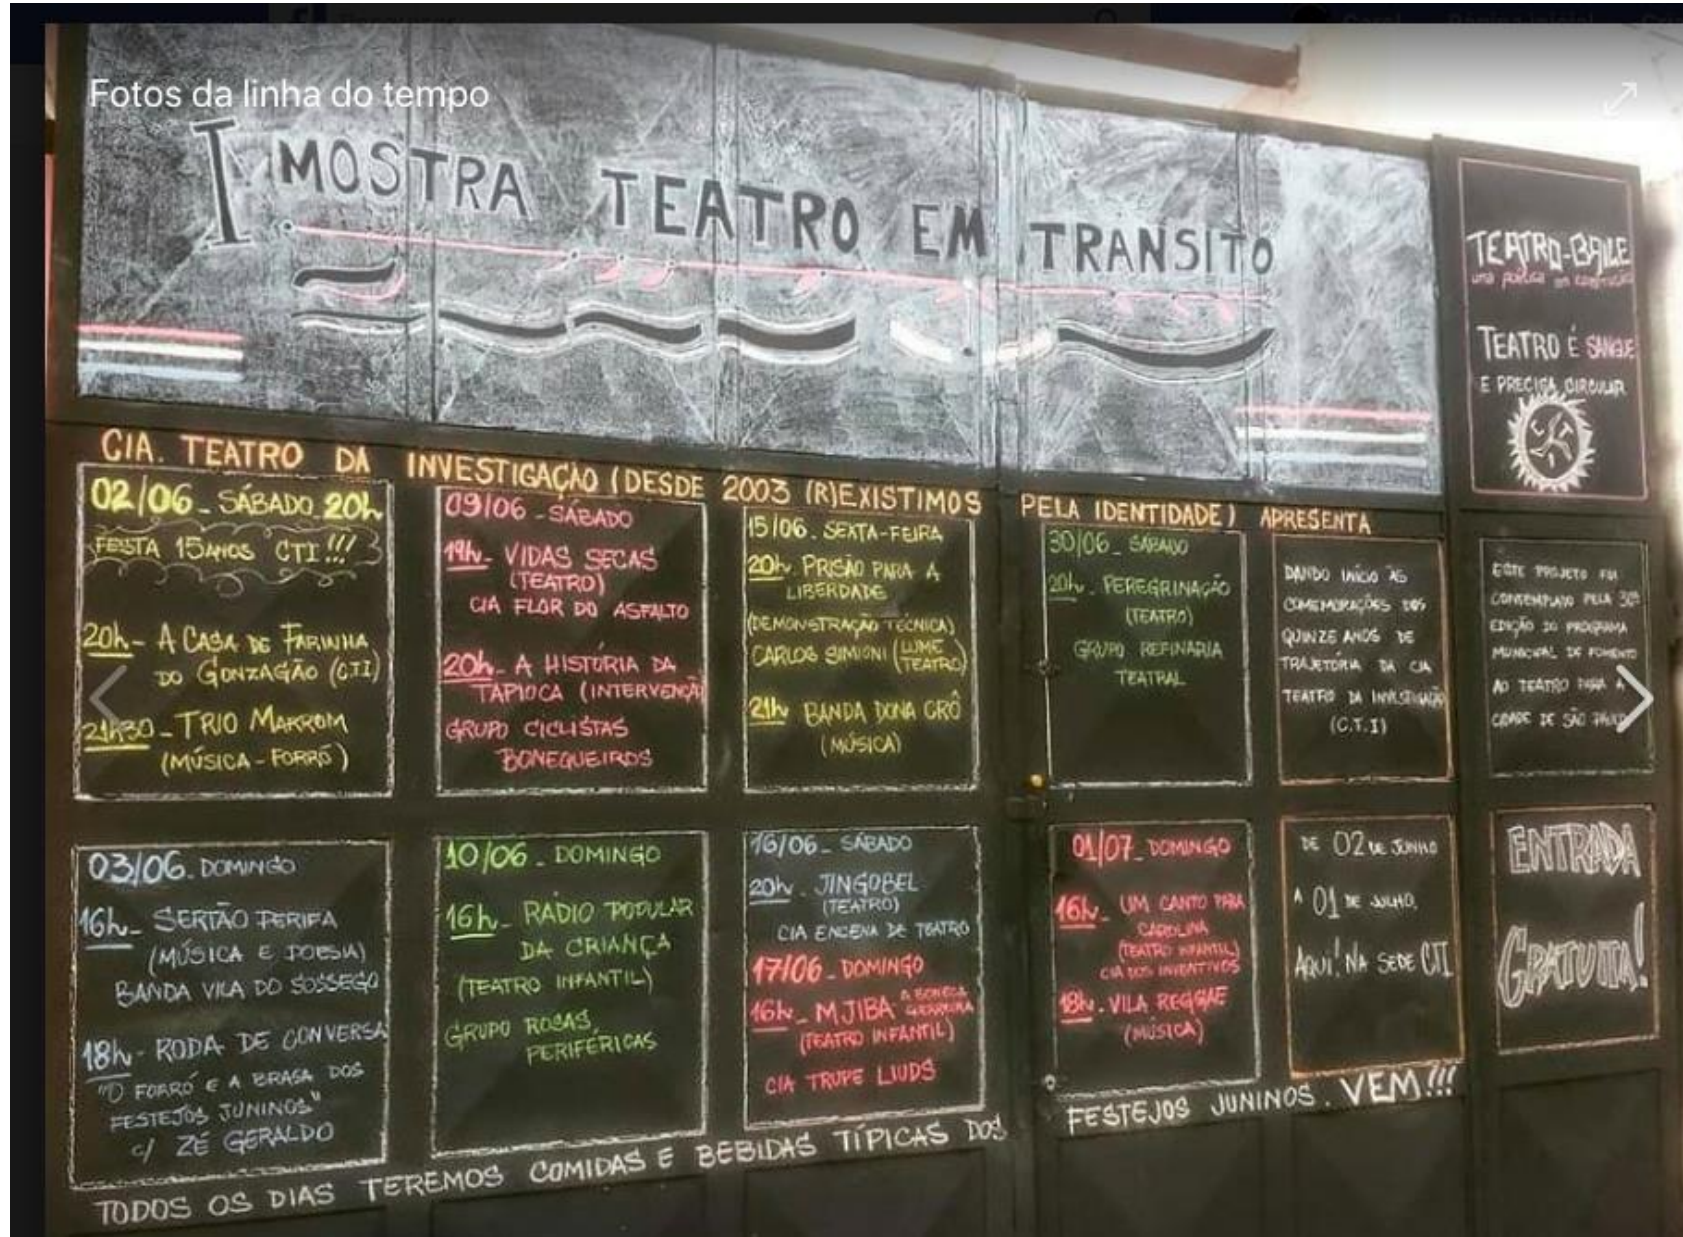 Fotos da linha do tempo
I MOSTRA TEATRO EM TRÂNSITO
TEATRO-BAILE
uma poética em construção
TEATRO É SANGUE
E PRECISA CIRCULAR
C T I
CIA. TEATRO DA INVESTIGAÇÃO (DESDE 2003 (R)EXISTIMOS PELA IDENTIDADE) APRESENTA
02/06 - SÁBADO 20h
FESTA 15 ANOS CTI!!!
20h - A CASA DE FARINHA
DO GONZAGÃO (CTI)
21h30 - TRIO MARROM
(MÚSICA - FORRÓ)
09/06 - SÁBADO
19h - VIDAS SECAS
(TEATRO)
CIA FLOR DO ASFALTO
20h - A HISTÓRIA DA
TAPIOCA (INTERVENÇÃO)
GRUPO CICLISTAS
BONEQUEIROS
15/06. SEXTA-FEIRA
20h. PRISÃO PARA A
LIBERDADE
(DEMONSTRAÇÃO TÉCNICA)
CARLOS SIMIONI (LUME
TEATRO)
21h BANDA DONA CRÔ
(MÚSICA)
30/06 - SÁBADO
20h - PEREGRINAÇÃO
(TEATRO)
GRUPO REFINARIA
TEATRAL
DANDO INÍCIO ÀS
COMEMORAÇÕES DOS
QUINZE ANOS DE
TRAJETÓRIA DA CIA
TEATRO DA INVESTIGAÇÃO
(C.T.I)
ESTE PROJETO FOI
CONTEMPLADO PELA 30ª
EDIÇÃO DO PROGRAMA
MUNICIPAL DE FOMENTO
AO TEATRO PARA A
CIDADE DE SÃO PAULO
03/06. DOMINGO
16h - SERTÃO PERIFA
(MÚSICA E POESIA)
BANDA VILA DO SOSSEGO
18h - RODA DE CONVERSA
"O FORRÓ E A BRASA DOS
FESTEJOS JUNINOS"
c/ ZÉ GERALDO
10/06 - DOMINGO
16h - RÁDIO POPULAR
DA CRIANÇA
(TEATRO INFANTIL)
GRUPO ROSAS
PERIFÉRICAS
16/06 - SÁBADO
20h - JINGOBEL
(TEATRO)
CIA ENCENA DE TEATRO
17/06 - DOMINGO
16h - MJIBA A BONECA
GUERREIRA
(TEATRO INFANTIL)
CIA TRUPE LIUDS
01/07 - DOMINGO
16h - UM CANTO PARA
CAROLINA
(TEATRO INFANTIL)
CIA DOS INVENTIVOS
18h - VILA REGGAE
(MÚSICA)
DE 02 DE JUNHO
A 01 DE JULHO.
AQUI! NA SEDE CTI
ENTRADA
GRATUITA!
TODOS OS DIAS TEREMOS COMIDAS E BEBIDAS TÍPICAS DOS FESTEJOS JUNINOS. VEM!!!